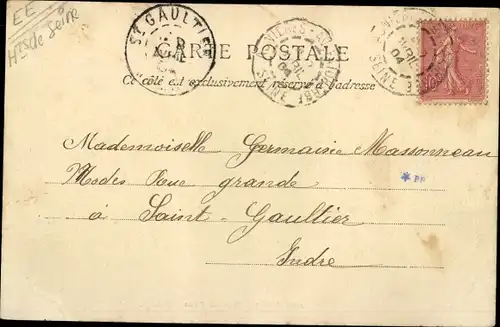 EE
Hts de Seine
ST GAULTIER
CARTE POSTALE
Ce côté est exclusivement réservé à l'adresse
AVRIL
04
SEINE
AVRIL
04
SEINE
Mademoiselle Germaine Massonneau
Modes Rue grande
à Saint-Gaultier
Indre